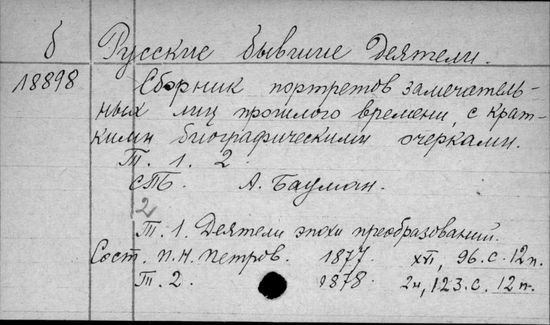 б Русские бывшие деятели.
18898 Сборник портретов замечатель-
ных лиц прошлого времени, с крат-
кими биографическими очерками.
Т. 1. 2
СПБ. А. Бауман.
2
Т. 1. Деятели эпохи преобразований.
Сост. П. Н. Петров. 1877. XVI, 96. с. 12 п.
Т. 2. 1878 2н, 123. с. 12 п.